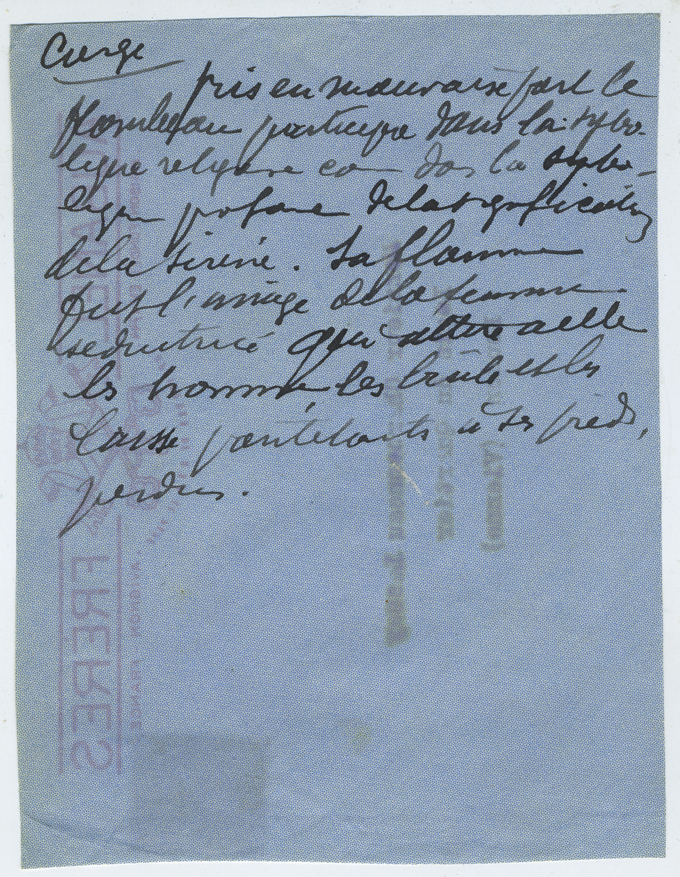 Cierge
pris en mauvaise part le
flambeau participe dans la symbo-
lique religieuse com dans la symbo-
lique profane de la signification
de la sirène. Sa flamme
fut l'image de la femme
séductrice qui attire a elle
les hommes les brûle et les
laisse pantelants à ses pieds,
perdus.
FRERES
AVIGNON - FRANCE